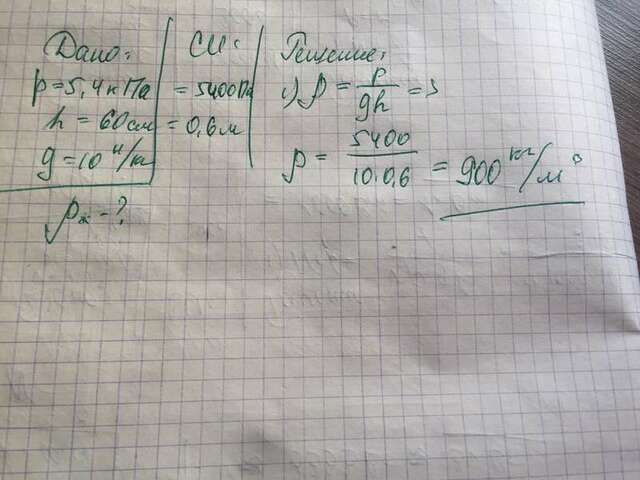 Дано:
p=5,4кПа
h=60см
g=10 Н/кг
ρж-?
СИ:
=5400Па
=0,6м
Решение:
1) ρ = p/gh =>
ρ = 5400/10·0,6 = 900 кг/м³